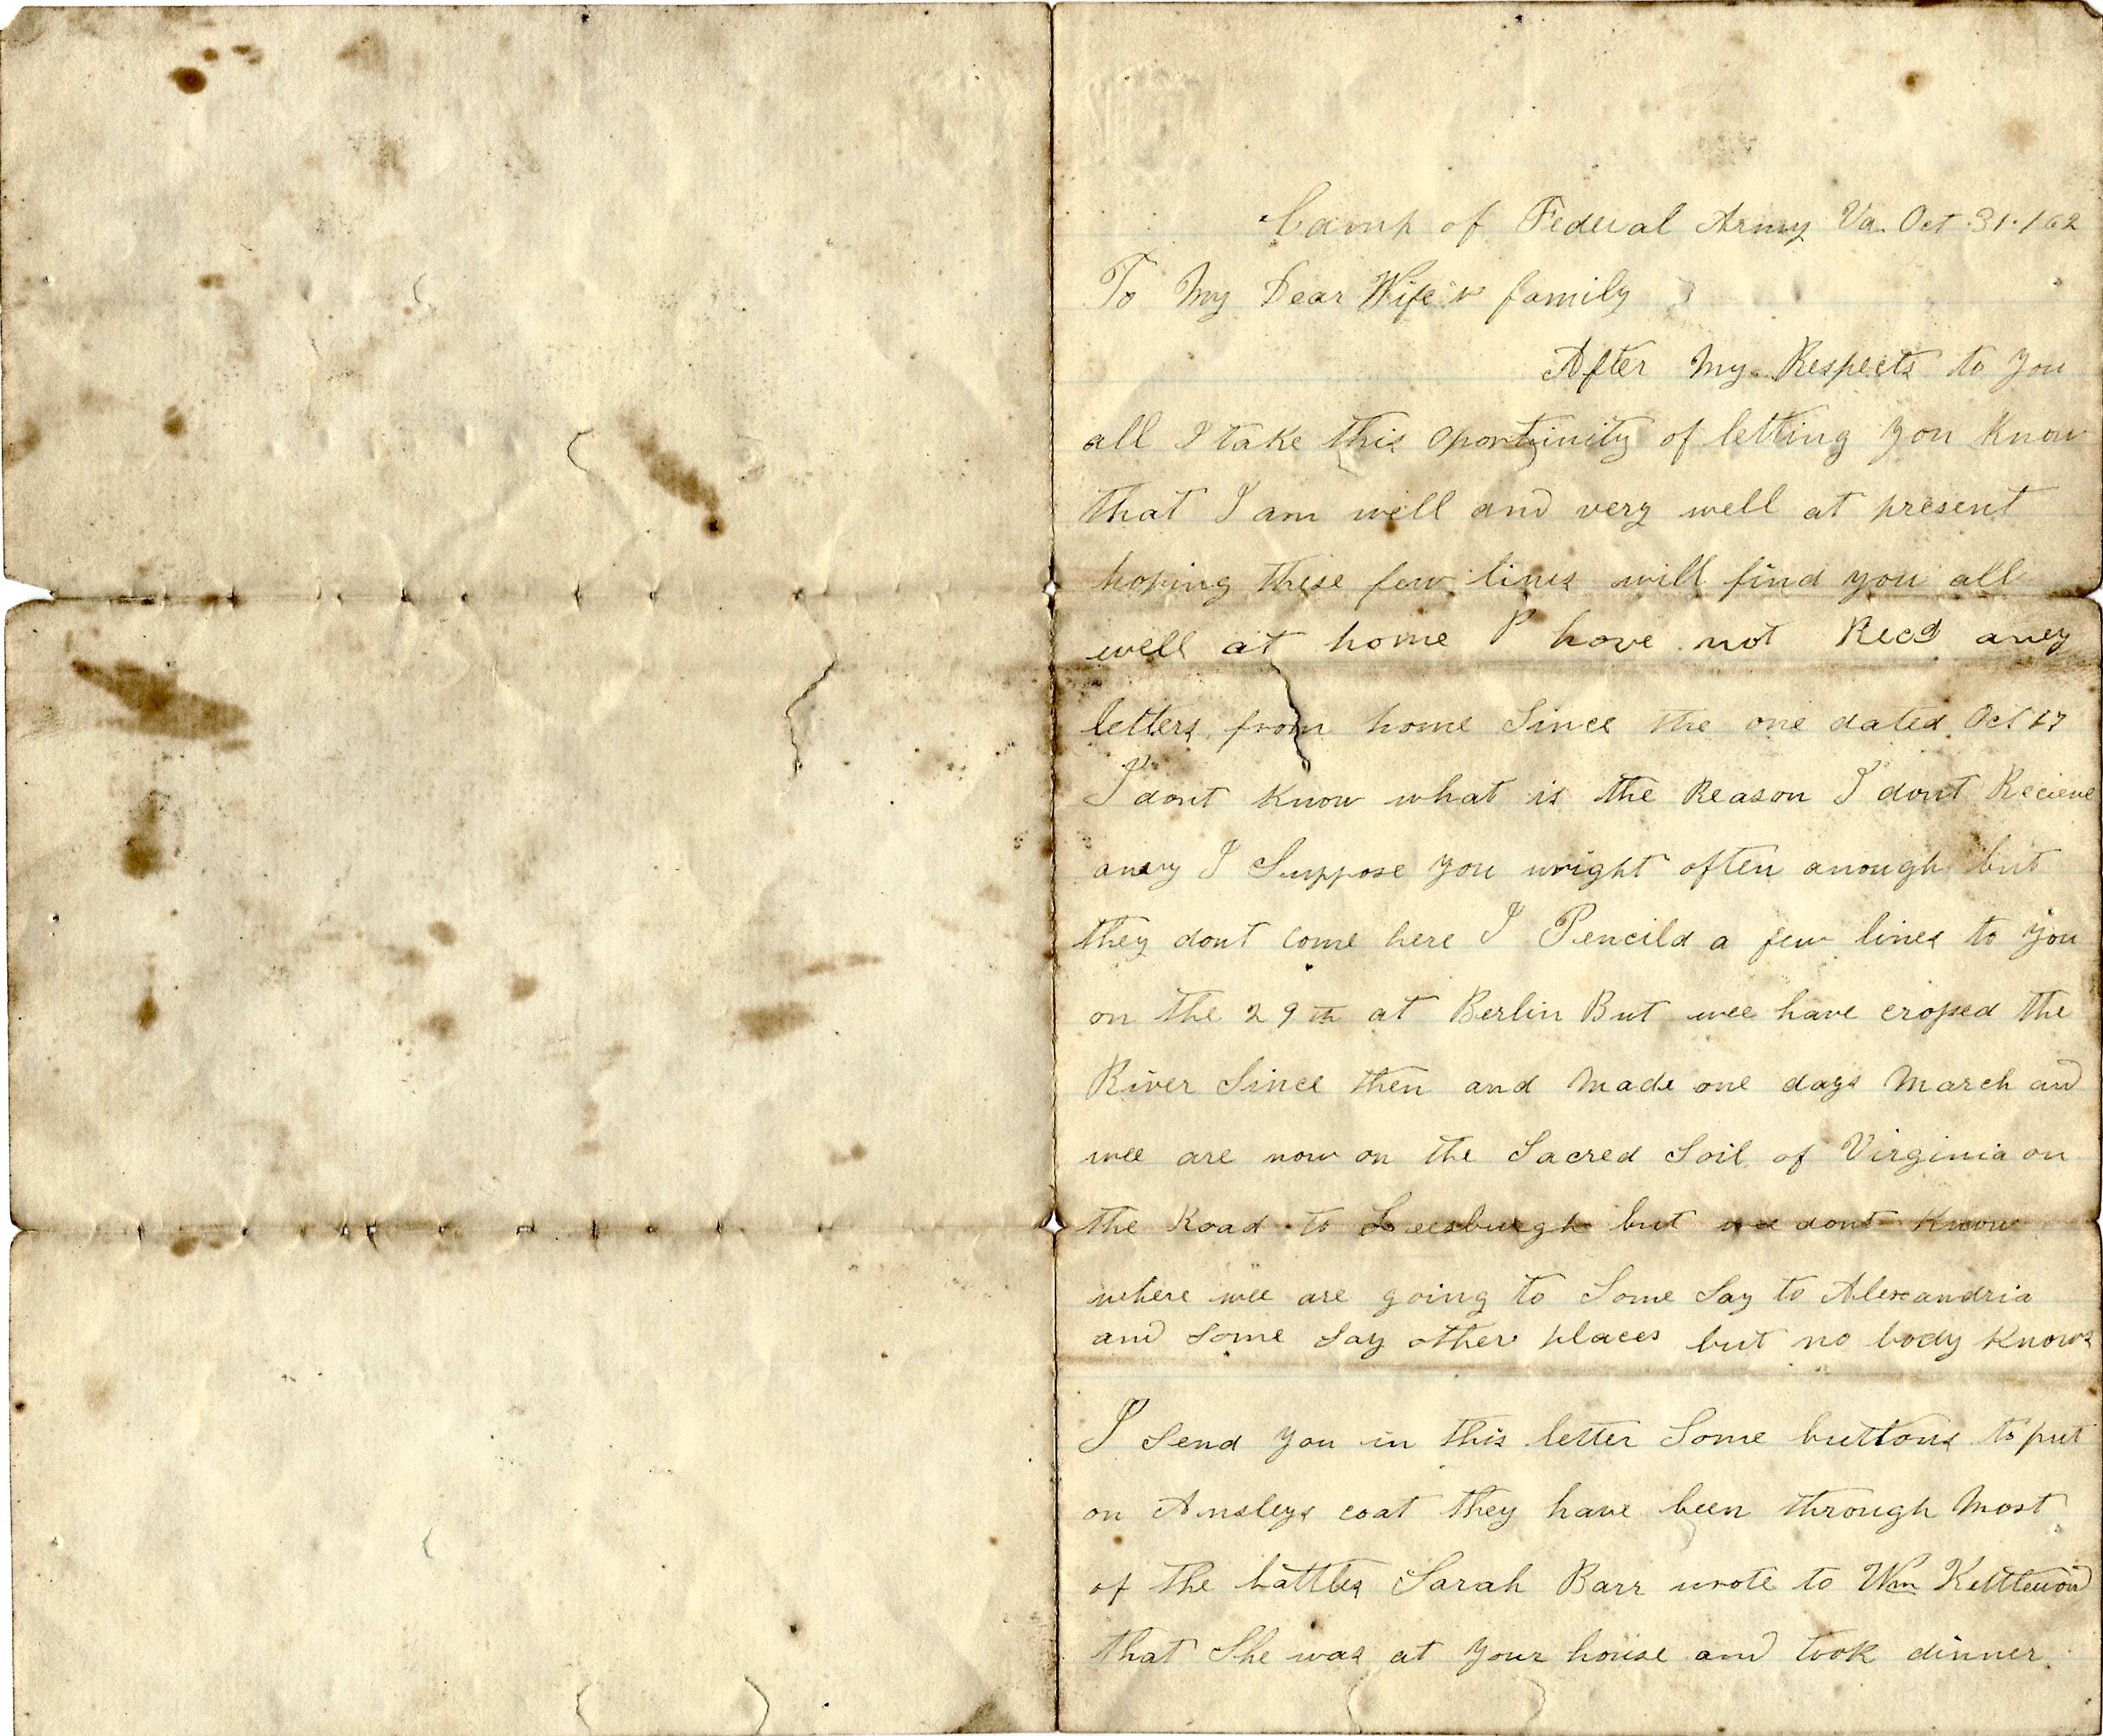 Camp of Federal Army Va. Oct. 31. / 62
To My Dear Wife & family
After My Respects to you
all I take this oportunity of letting you Know
that I am well and very well at present
hoping these few lines will find you all
well at home I have not Recd aney
letters from home Since the one dated Oct 17
I dont Know what is the Reason I dont Recieve
aney I Suppose you wright often anough but
they dont come here I Pencild a few lines to you
on the 29th at Berlin But wee have crosed the
River Since then and Made one days March and
wee are now on the Sacred Soil of Virginia on
the Road to Leesburgh but we dont Know
where wee are going to Some Say to Alexandria
and Some Say other places but no body Knows
I Send you in this letter Some buttons to put
on Ansleys coat they have been through Most
of the battles Sarah Barr wrote to Wm
that She was at your house and took dinner